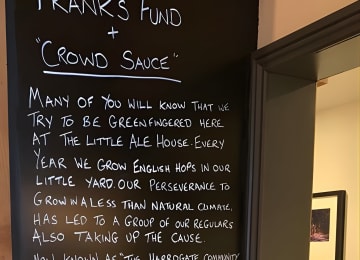 FRANKS FUND
+
"CROWD SAUCE"
MANY OF YOU WILL KNOW THAT WE
TRY TO BE GREENFINGERED HERE
AT THE LITTLE ALE HOUSE. EVERY
YEAR WE GROW ENGLISH HOPS IN OUR
LITTLE YARD. OUR PERSEVERANCE TO
GROW IN A LESS THAN NATURAL CLIMATE,
HAS LED TO A GROUP OF OUR REGULARS
ALSO TAKING UP THE CAUSE.
NOW KNOWN AS "THE HARROGATE COMMUNITY